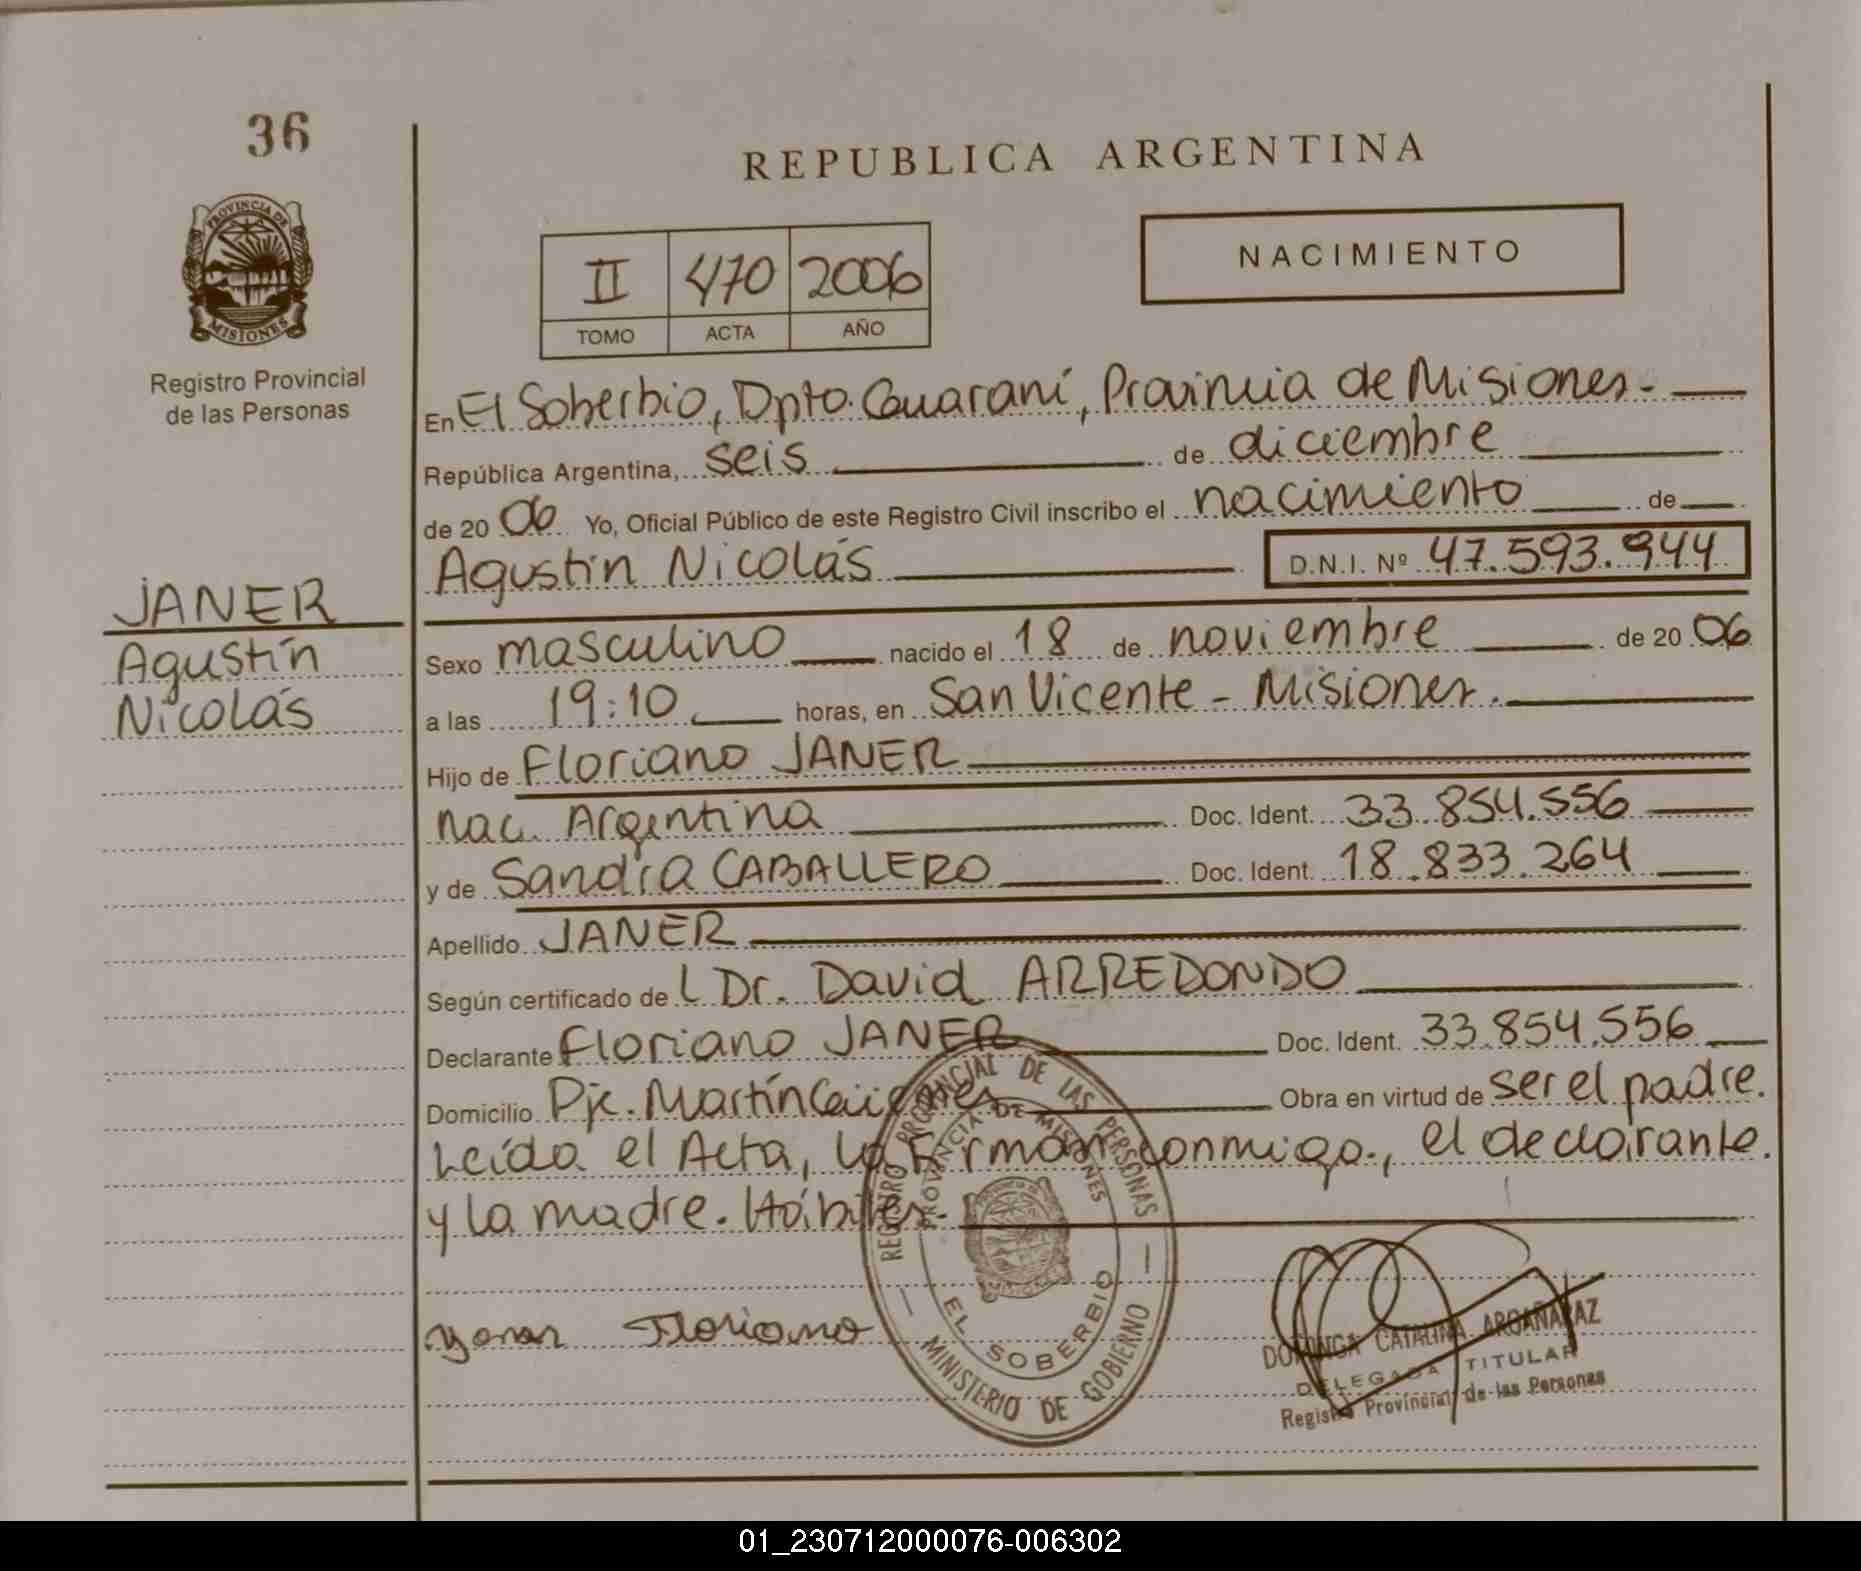 36
REPUBLICA ARGENTINA
PROVINCIA DE
MISIONES
Registro Provincial
de las Personas
II 470 2006
TOMO ACTA AÑO
NACIMIENTO
En El Soberbio, Dpto. Guaraní, Provincia de Misiones.-
República Argentina, seis de diciembre
de 20 06 Yo, Oficial Público de este Registro Civil inscribo el nacimiento de
Agustín Nicolás D.N.I. Nº 47.593.944
JANER
Agustín
Nicolás
Sexo masculino nacido el 18 de noviembre de 20 06
a las 19:10 horas, en San Vicente - Misiones.
Hijo de Floriano JANER
nac. Argentina Doc. Ident. 33.854.556
y de Sandra CABALLERO Doc. Ident. 18.833.264
Apellido JANER
Según certificado de l Dr. David ARREDONDO
Declarante Floriano JANER Doc. Ident. 33.854.556
Domicilio Pje. Martín Obra en virtud de ser el padre.
Leída el Acta, la Firman conmigo, el declarante
y la madre. Hábiles.-
REGISTRO PROVINCIAL DE LAS PERSONAS
PROVINCIA DE MISIONES
EL SOBERBIO
MINISTERIO DE GOBIERNO
Floriano
DOMINGA CATALINA ARGAÑARAZ
DELEGADA TITULAR
Registro Provincial de las Personas
01_230712000076-006302